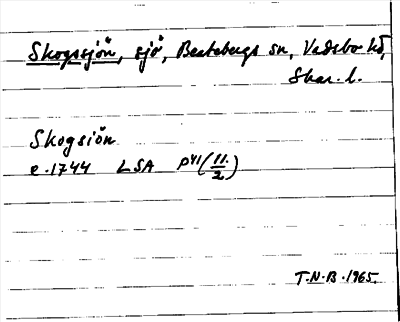 Skogssjön, sjö, Beatebergs sn, Vadsbo hd,
Skar. l.
Skogsiön
e. 1744 LSA P41 (11/2)
T.N.B. 1965.